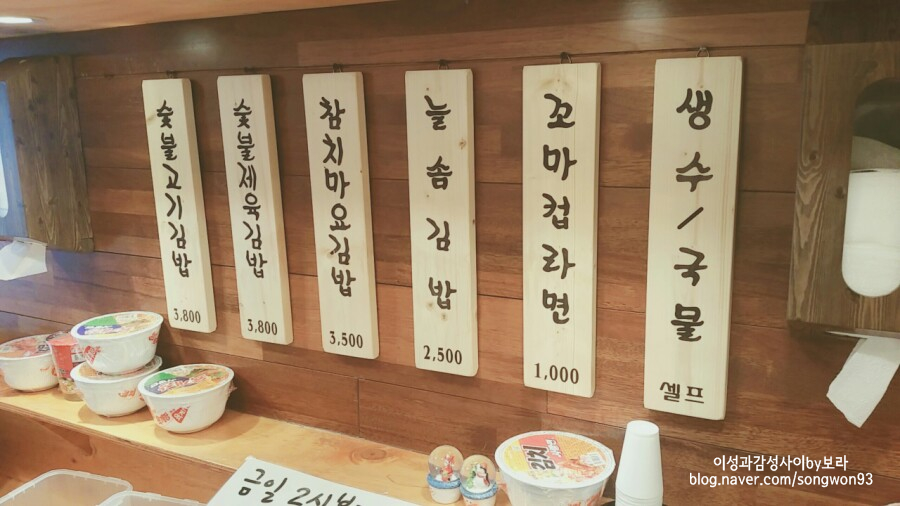 숯불고기김밥
3,800
숯불제육김밥
3,800
참치마요김밥
3,500
늘솜김밥
2,500
꼬마컵라면
1,000
생수/국물
셀프
김치
금일 2시부
이성과감성사이by보라
blog.naver.com/songwon93